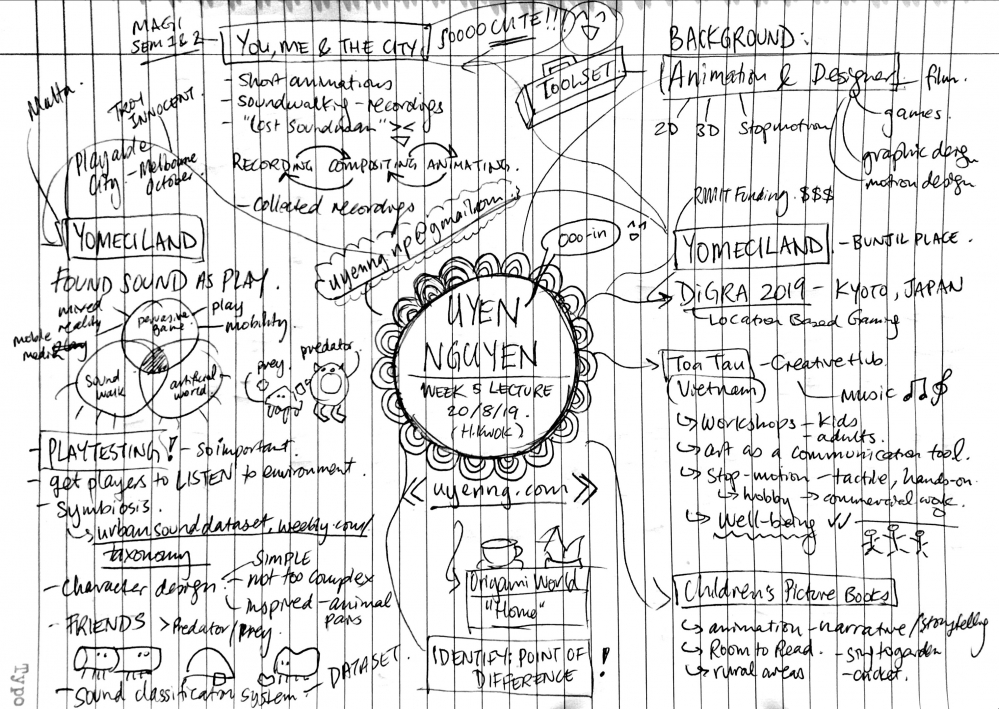 MAGI
SEM 1&2
YOU, ME & THE CITY
SOOOO CUTE!!!
- Short animations
- Soundwalking - recordings
- "Lost Soundman" ><
RECORDING COMPOSITING ANIMATING.
- Collected recordings
TOOLSET
BACKGROUND:
Animation & Designer
film.
games.
graphic design
motion design
2D 3D Stopmotion
RMIT Funding. $$$
YOMECILAND - BUNJIL PLACE.
DiGRA 2019 - KYOTO, JAPAN
Location Based Gaming
Toa Tau - Creative Hub.
(Vietnam)
MUSIC
Workshops - kids
- adults.
art as a communication tool.
Stop-motion - tactile, hands-on.
hobby → commercial work.
Well-being
Children's Picture Books
animation - narrative/storytelling
Room to Read.
rural areas
Malta.
TROY INNOCENT.
Playable
City. - Melbourne
October.
YOMECILAND
FOUND SOUND AS PLAY.
mixed
reality
mobile
media
pervasive
game
play
mobility.
sound
walk
artificial
world.
prey.
predator.
- PLAYTESTING! - so important.
- get players to LISTEN to environment.
- Symbiosis.
urbansounddataset.weebly.com/
taxonomy
- Character design.
- SIMPLE
- not too complex
- inspired - animal
pairs
- FRIENDS > Predator/prey.
- Sound classification system - DATASET.
uyenng.np@gmail.com
ooo-in
UYEN
NGUYEN
WEEK 5 LECTURE
20/8/19.
(H.KWOK)
<< uyenng.com >>
Origami World
"Home"
IDENTIFY: POINT OF
DIFFERENCE !
Typo